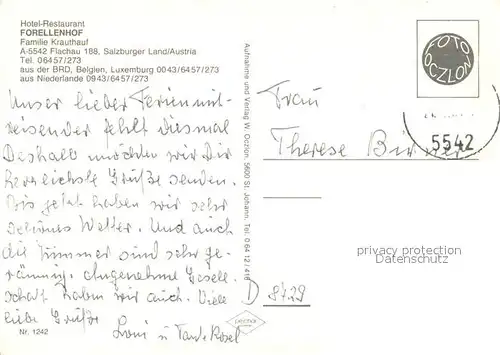 Hotel-Restaurant
FORELLENHOF
Familie Krauthauf
A-5542 Flachau 188, Salzburger Land/Austria
Tel. 06457/273
aus der BRD, Belgien, Luxemburg 0043/6457/273
aus Niederlande 0943/6457/273
Unser lieber Ferienmit-
reisender fehlt diesmal
Deshalb möchten wir Dir
herrlichste Grüße senden.
Bis jetzt haben wir sehr
schönes Wetter. Und auch
die Zimmer sind sehr ge-
räumig. Angenehme Gesell-
schaft haben wir auch. Viele
liebe Grüße
Loni u Tante Rosel
Nr. 1242
Aufnahme und Verlag W. Oczlon, 5600 St. Johann, Tel. 0 64 12 / 416
FOTO
OCZLON
5542
Frau
Therese
D 8729
protection copyright
Datenschutz